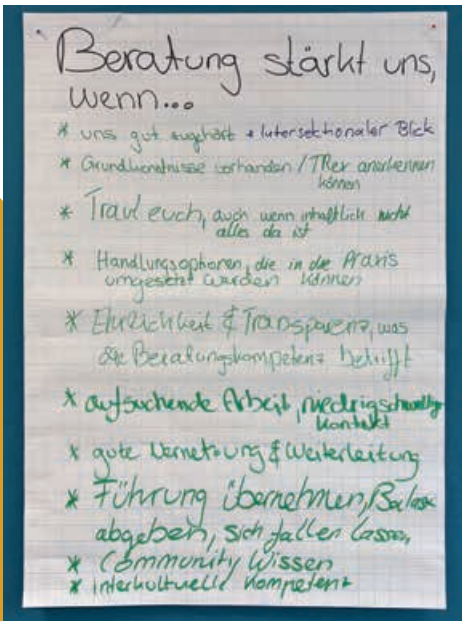 Beratung stärkt uns,
wenn...
* uns gut zugehört + intersektionaler Blick
* Grundkenntnisse vorhanden / anerkennen
können
* Traut euch, auch wenn inhaltlich nicht
alles da ist
* Handlungsoptionen, die in die Praxis
umgesetzt werden können
* Ehrlichkeit & Transparenz, was
die Beratungskompetenz betrifft
* aufsuchende Arbeit, niedrigschwellig
Kontakt
* gute Vernetzung & Weiterleitung
* Führung übernehmen, Balast
abgeben, sich fallen lassen,
* Community Wissen
* interkulturelle Kompetenz